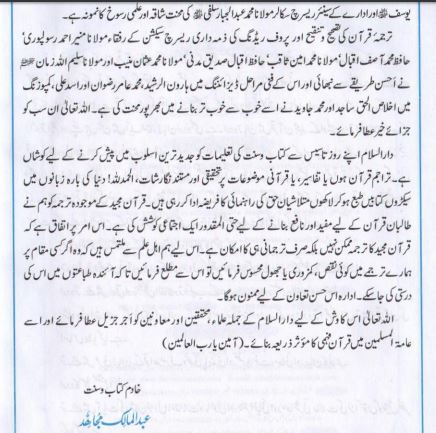 یوسف ﷾ اور ادارے کے سینئر ریسرچ سکالر مولانا محمد عبدالجبار سلفی ﷾ کی محنت شاقہ اور علمی رسوخ کا نمونہ ہے۔
ترجمۂ قرآن کی تصحیح و تنقیح اور پروف ریڈنگ کی ذمہ داری ریسرچ سیکشن کے رفقاء مولانا منیر احمد رسولپوری،
حافظ محمد آصف اقبال، مولانا محمد امین ثاقب، حافظ اقبال صدیق مدنی، مولانا محمد عثمان منیب اور مولانا سلیم اللہ زمان
نے احسن طریقے سے نبھائی اور اس کے فنی مراحل ڈیزائننگ میں ہارون الرشید، محمد عامر رضوان اور اسد علی، کمپوزنگ
میں اخلاص الحق ساجد اور محمد جاوید نے اسے خوب سے خوب تر بنانے میں بھرپور محنت کی ہے۔ اللہ تعالیٰ ان سب کو
جزائے خیر عطا فرمائے۔
دارالسلام اپنے روز تاسیس سے کتاب و سنت کی تعلیمات کو جدید ترین اسلوب میں پیش کرنے کے لیے کوشاں
ہے۔ تراجم قرآن ہوں یا تفاسیر، یا قرآنی موضوعات پر تحقیقی اور مستند نگارشات، الحمدللہ! دنیا کی بارہ زبانوں میں
سیکڑوں کتابیں طبع ہو کر لاکھوں متلاشیان حق کی راہنمائی کا فریضہ ادا کر رہی ہیں۔ قرآن مجید کے موجودہ ترجمہ کو ہم نے
طالبان قرآن کے لیے مفید اور نافع بنانے کے لیے حتی المقدور ایک اجتماعی کوشش کی ہے۔ اس امر پر اتفاق ہے کہ
قرآن مجید کا ترجمہ ممکن نہیں بلکہ صرف ترجمانی ہی کا امکان ہے۔ اس لیے ہم اہل علم سے ملتمس ہیں کہ وہ اگر کسی مقام پر
ہمارے ترجمے میں کوئی نقص، کمزوری یا جھول محسوس فرمائیں تو اس سے مطلع فرمائیں تاکہ آئندہ طباعتوں میں اس کی
درستی کی جا سکے۔ ادارہ اس حسن تعاون کے لیے ممنون ہوگا۔
اللہ تعالیٰ اس کاوش کے لیے دارالسلام کے جملہ علماء، محققین اور معاونین کو اجر جزیل عطا فرمائے اور اسے
عامۃ المسلمین میں قرآن فہمی کا مؤثر ذریعہ بنائے۔ (آمین یارب العالمین)
خادم کتاب و سنت
عبدالمالک مجاہد